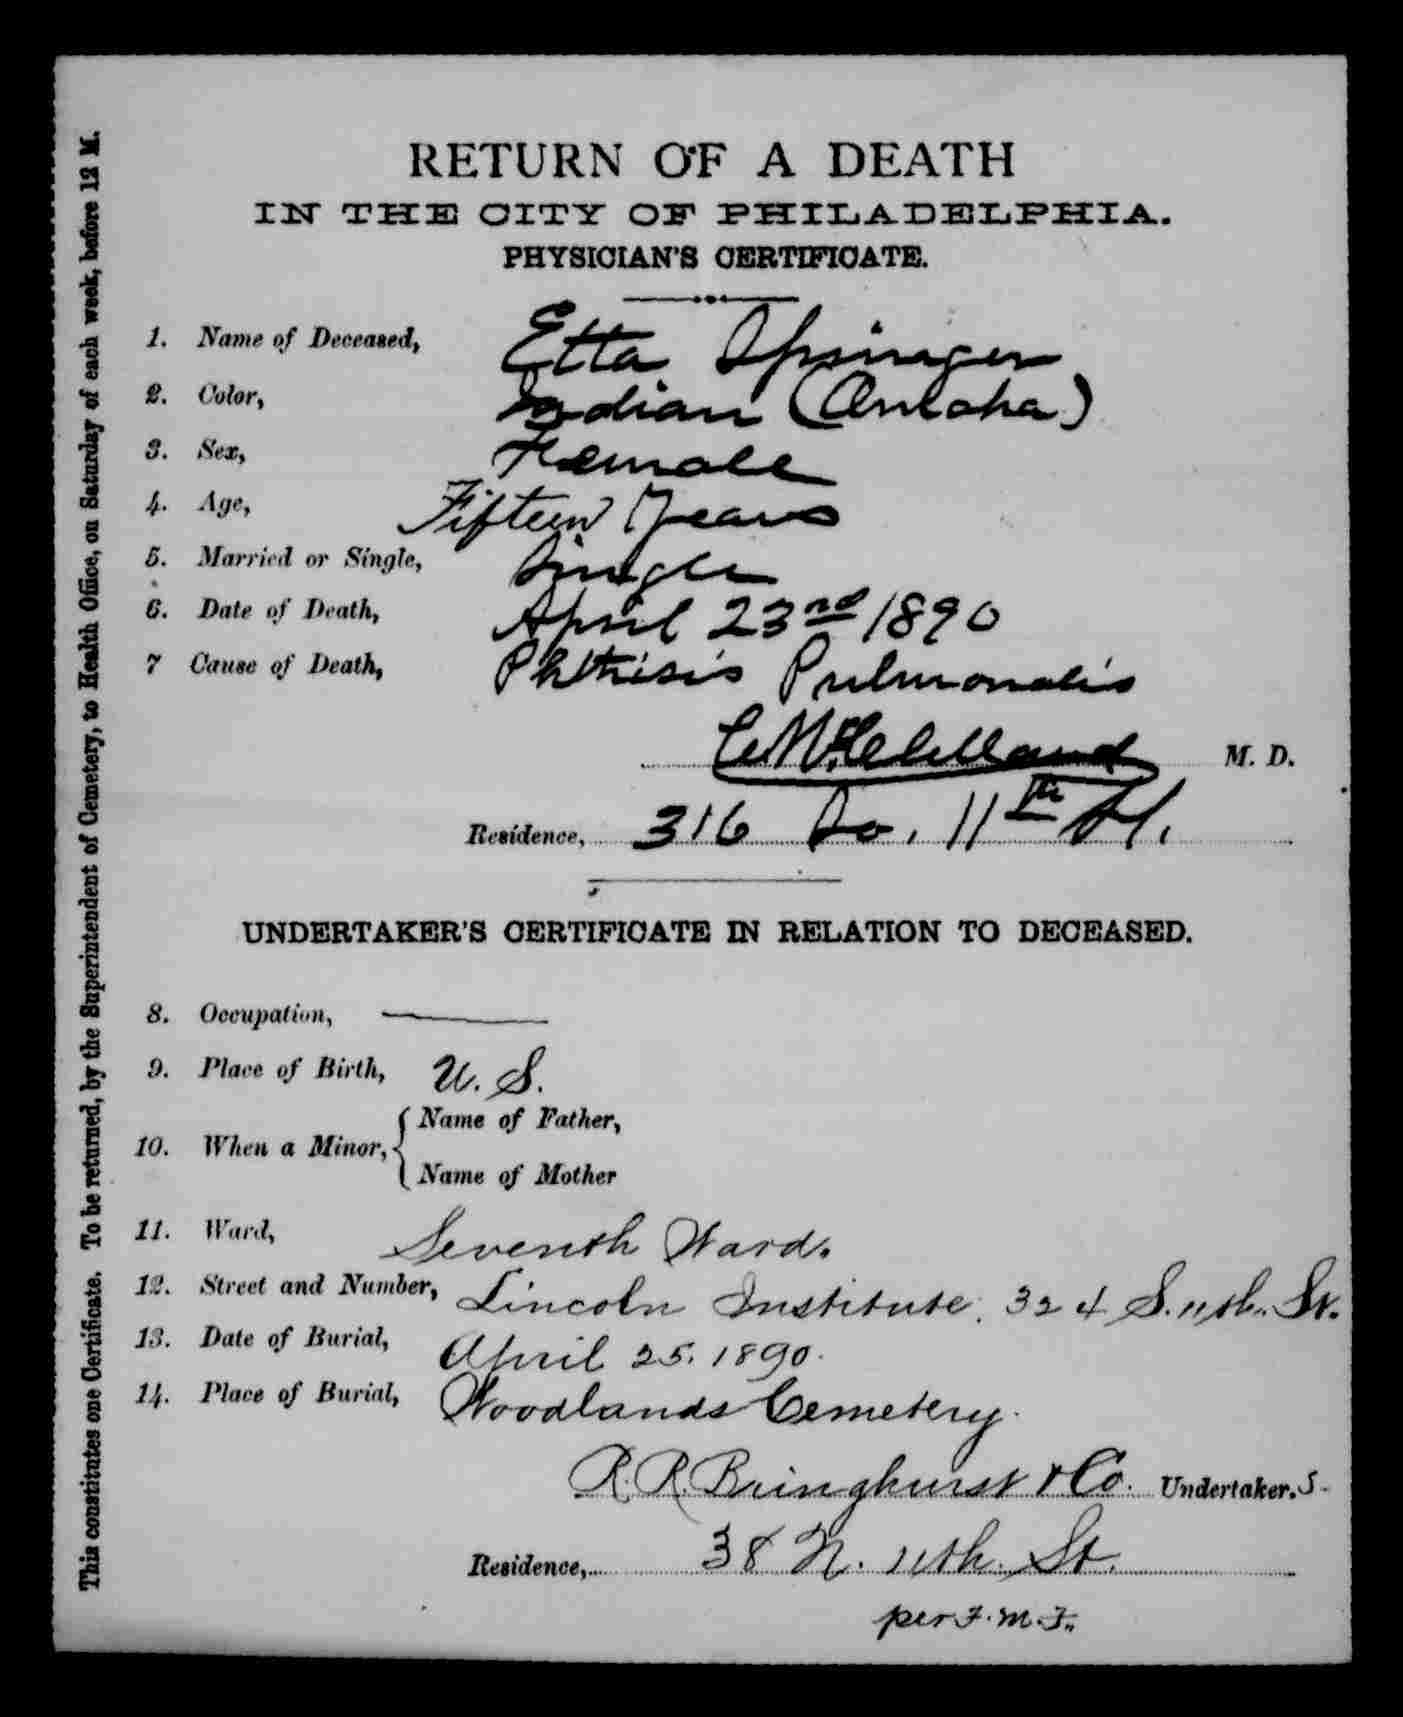 RETURN OF A DEATH
IN THE CITY OF PHILADELPHIA.
PHYSICIAN'S CERTIFICATE.
1. Name of Deceased, Etta Springer
2. Color, Indian (Omaha)
3. Sex, Female
4. Age, Fifteen Years
5. Married or Single, Single
6. Date of Death, April 23nd 1890
7 Cause of Death, Phthisis Pulmonalis
McClelland M. D.
Residence, 316 So. 11th St.
UNDERTAKER'S CERTIFICATE IN RELATION TO DECEASED.
8. Occupation,
9. Place of Birth, U. S.
10. When a Minor, { Name of Father,
Name of Mother
11. Ward, Seventh Ward.
12. Street and Number, Lincoln Institute. 324 S. 11th. St.
13. Date of Burial, April 25. 1890.
14. Place of Burial, Woodlands Cemetery.
R. R. Bringhurst & Co. Undertaker.s.
Residence, 38 N. 11th. St.
per F. M. F.
This constitutes one Certificate. To be returned, by the Superintendent of Cemetery, to Health Office, on Saturday of each week, before 12 M.